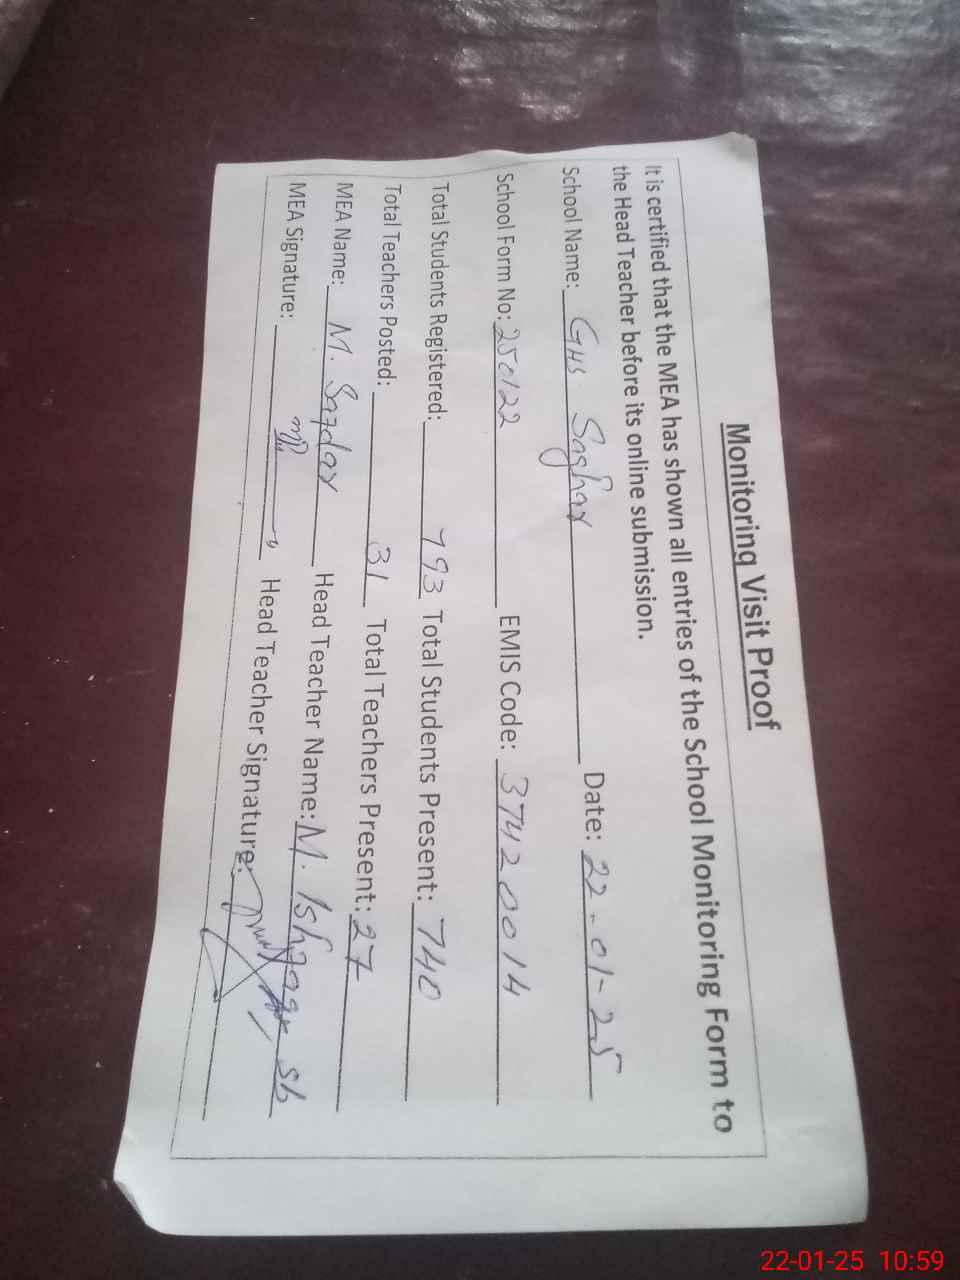 Monitoring Visit Proof
It is certified that the MEA has shown all entries of the School Monitoring Form to
the Head Teacher before its online submission.
School Name: GHS Saghar Date: 22-01-25
School Form No: 250122 EMIS Code: 37420014
Total Students Registered: 793 Total Students Present: 740
Total Teachers Posted: 31 Total Teachers Present: 27
MEA Name: M. Safdar Head Teacher Name: M. Ishaq sb
MEA Signature: Head Teacher Signature:
22-01-25 10:59